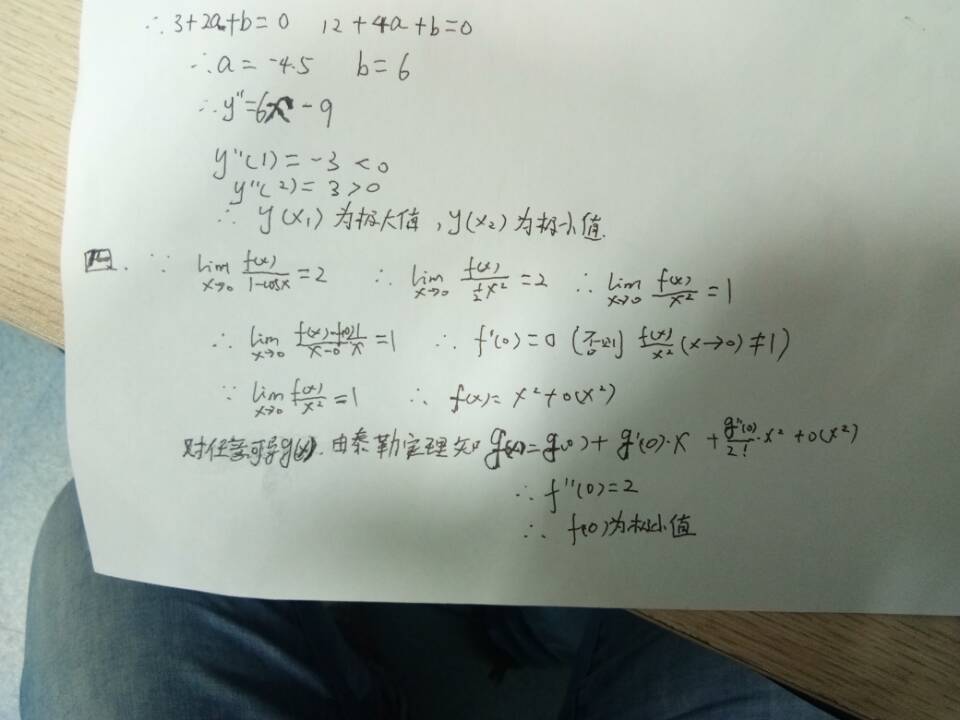 ∴ 3+2a+b=0 12+4a+b=0
∴ a=-4.5 b=6
∴ y''=6x-9
y''(1)=-3<0
y''(2)=3>0
∴ y(x₁)为极大值,y(x₂)为极小值.
四. ∵ lim_{x→0} f(x)/(1-cosx)=2 ∴ lim_{x→0} f(x)/(½x²)=2 ∴ lim_{x→0} f(x)/x²=1
∴ lim_{x→0} (f(x)-f(0))/(x-0)·1/x=1 ∴ f'(0)=0 (否则 f(x)/x² (x→0)≠1)
∵ lim_{x→0} f(x)/x²=1 ∴ f(x)=x²+o(x²)
对任意可导g(x).由泰勒定理知 g(x)=g(0)+g'(0)·x+g''(0)/2!·x²+o(x²)
∴ f''(0)=2
∴ f(0)为极小值